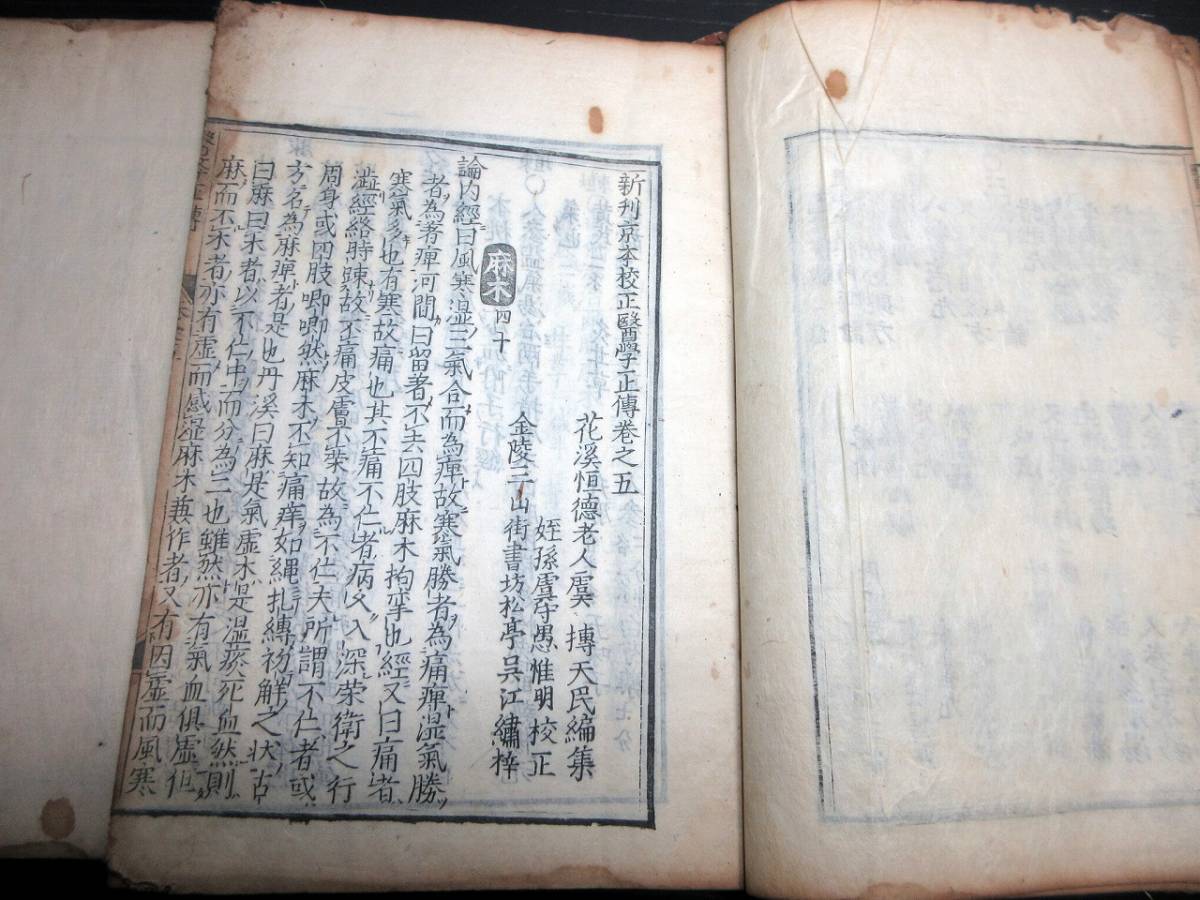 新刊京本校正醫學正傳卷之五
花溪恒德老人虞 摶天民編集
姪孫虞守愚惟明校正
金陵三山街書坊松亭吳江繡梓
麻木 四十
論內經曰風寒湿三氣合而為痺故寒氣勝者為痛痺湿氣勝
者為著痺河間曰留著不去四肢麻木拘挛也經又曰痛者
寒氣多也有寒故痛也其不痛不仁者病久入深荣衛之行
澁經絡時踈故不痛皮膚不荣故為不仁夫所謂不仁者或
周身或四肢唧唧然麻木不知痛痒如縄扎縳初觧之状古
方名為麻痺者是也丹溪曰麻是氣虚木是湿痰死血然則
曰麻曰木者以不仁中而分為二也雖然亦有氣血俱虚但
麻而不木者亦有虚而感湿麻木兼作者又有因虚而風寒